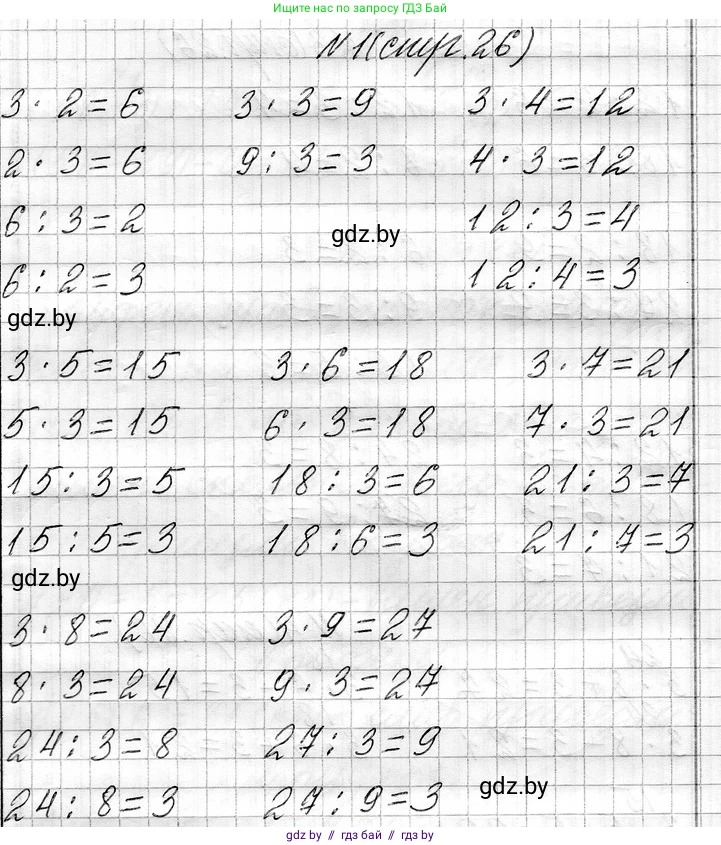 Ищите нас по запросу ГДЗ БАЙ
N 1(стр.26)
3 · 2 = 6 3 · 3 = 9 3 · 4 = 12
2 · 3 = 6 9 : 3 = 3 4 · 3 = 12
6 : 3 = 2 12 : 3 = 4
gdz.by
6 : 2 = 3 12 : 4 = 3
gdz.by
3 · 5 = 15 3 · 6 = 18 3 · 7 = 21
5 · 3 = 15 6 · 3 = 18 7 · 3 = 21
15 : 3 = 5 18 : 3 = 6 21 : 3 = 7
15 : 5 = 3 18 : 6 = 3 21 : 7 = 3
gdz.by
3 · 8 = 24 3 · 9 = 27
8 · 3 = 24 9 · 3 = 27
24 : 3 = 8 27 : 3 = 9
gdz.by
24 : 8 = 3 27 : 9 = 3
gdz.by // гдз бай // гдз by